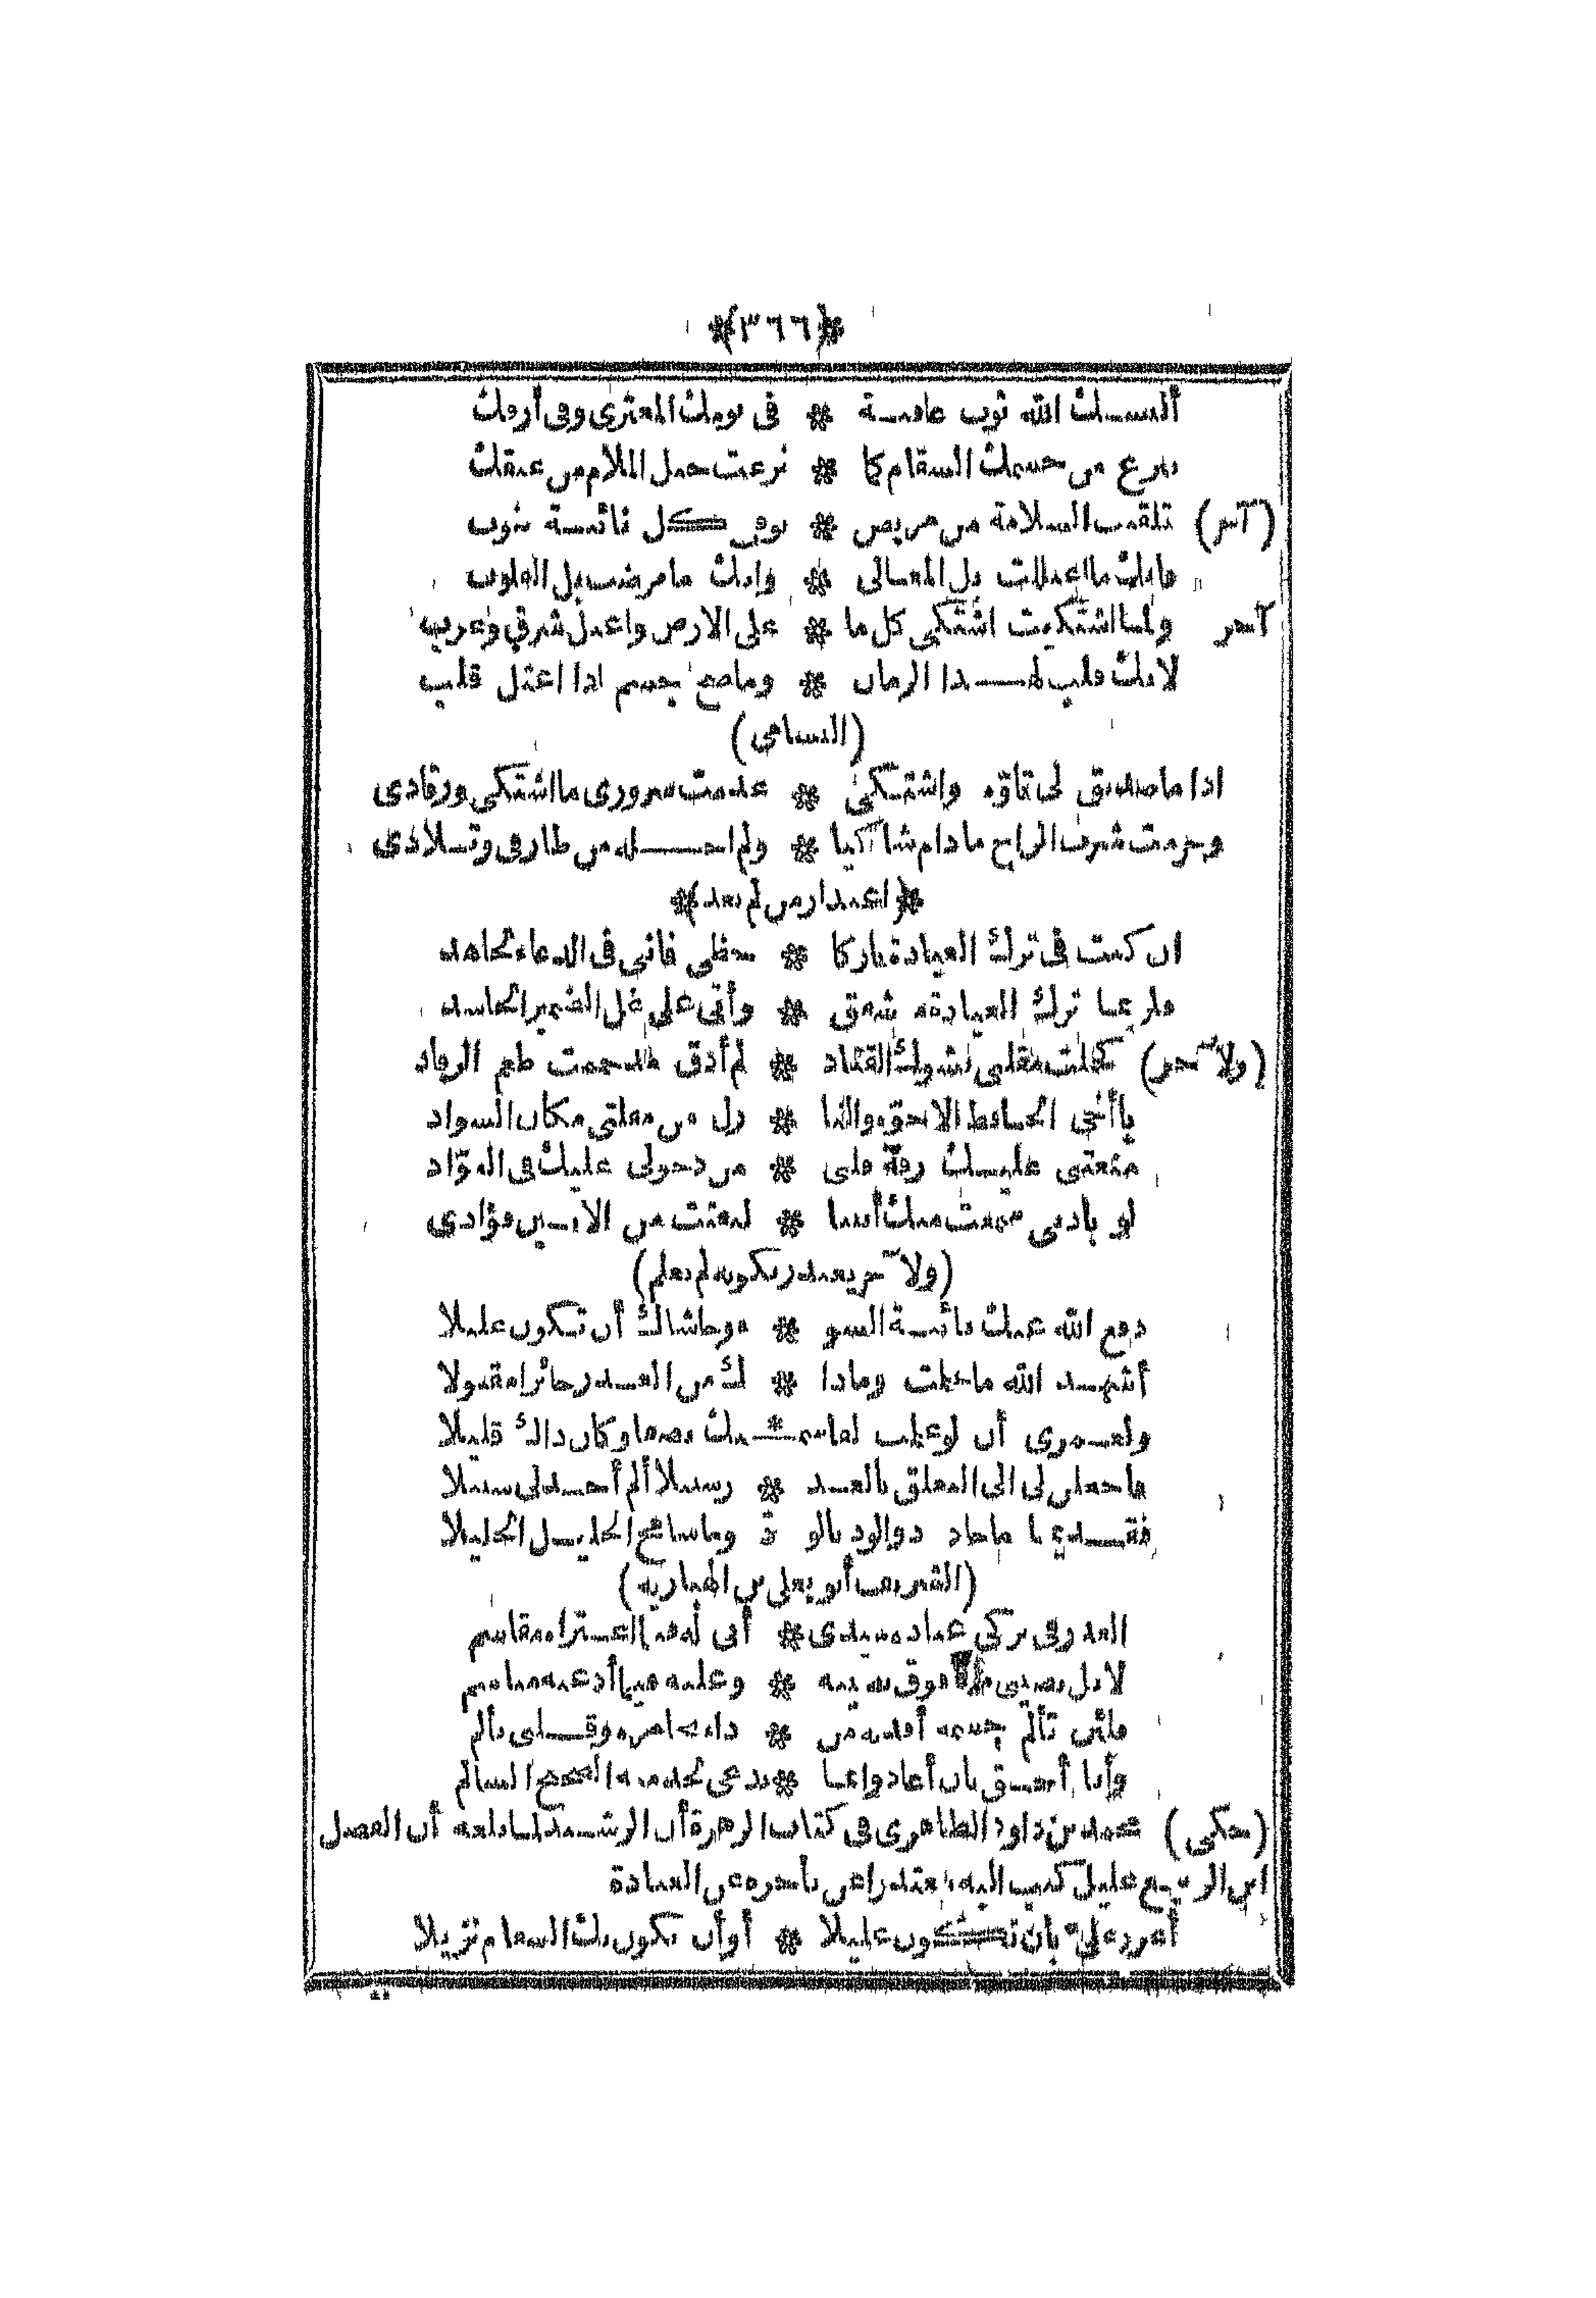 *(٣٦٦)*
ألبسك الله ثوب عافية * فى نومك المعترى وفى أرقك
ينزع من جسمك السقام كما * نزعت حبل الملام من عنقك
(آخر) تلقيت السلامة من مريض * نوفى كل نائبة تنوب
فانك ما اعتللت بل المعالى * وانك ما مرضت بل القلوب
آخر ولما اشتكيت اشتكى كل ما * على الارض واعتل شرق وغرب
لانك قلب لهذا الزمان * وما صح جسم اذا اعتل قلب
(البسامى)
اذا ما صديق لى تأوه واشتكى * عدمت سرورى ما اشتكى ورقادى
وحرمت شرب الراح مادام شاكيا * ولم أخله من طارفى وتلادى
*(اعتذار من لم يعد)*
ان كنت فى ترك العيادة تاركا * حظى فانى فى الدعاء لجاهد
فلربما ترك العيادة مشفق * وأتى على غل الضمير الحاسد
(ولآخر) كحلت مقلتى بشوك القتاد * لم أذق مذ حممت طعم الرقاد
يا أخى الحافظ الاخوة والنا * زل من مقلتى مكان السواد
منعتنى عليك رقة قلبى * من دخولى عليك فى العواد
لو بأذنى سمعت منك أنينا * لتفتت من الانين فؤادى
(ولآخر يعتذر بكونه لم يعلم)
دفع الله عنك نائبة السو * ء وحاشاك أن تكون عليلا
أشهد الله ما علمت وماذا * ك من العذر جائزا مقبولا
ولعمرى أن لو علمت لقاسمـ * ـتك نصفها وكان ذاك قليلا
فاجعلن لى الى التعلق بالعذ * ر سبيلا ان لم أجد لى سبيلا
فقديما ما جاد ذو الود بالود وما سامح الخليل الخليلا
(الشريف أبو يعلى بن الهبارية)
العذر فى تركى عيادة سيدى * أنى له فيما اعتراه مقاسم
لابل نصيبى منه فوق نصيبه * وعليه فيما أدعيه مياسم
فلئن تألم جسمه أفديه من * داء به اضره وقلبى يألم
وأنا أحق بان أعاد وانما * يدعى لخدمته الصحيح السالم
(حكى) محمد بن داود الظاهرى فى كتاب الزهرة أن الرشيد لما بلغه أن الفضل
ابن الربيع عليل كتب اليه معتذرا عن تأخره عن العيادة
أعزز على بان تكون عليلا * أو أن تكون بك السقام نزيلا